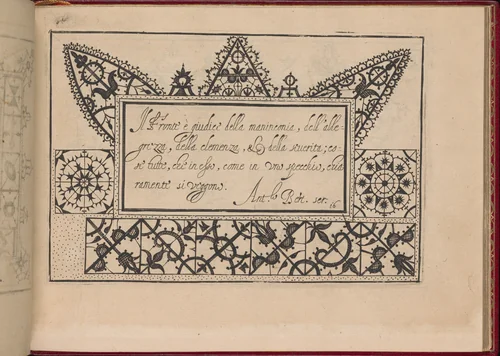 è giudice della maninconia, dell' alle-
grezza, della clemenza, & della severita; co-
se tutte, che in esso, come in uno specchio, chia-
ramente si veggono.
Ant.